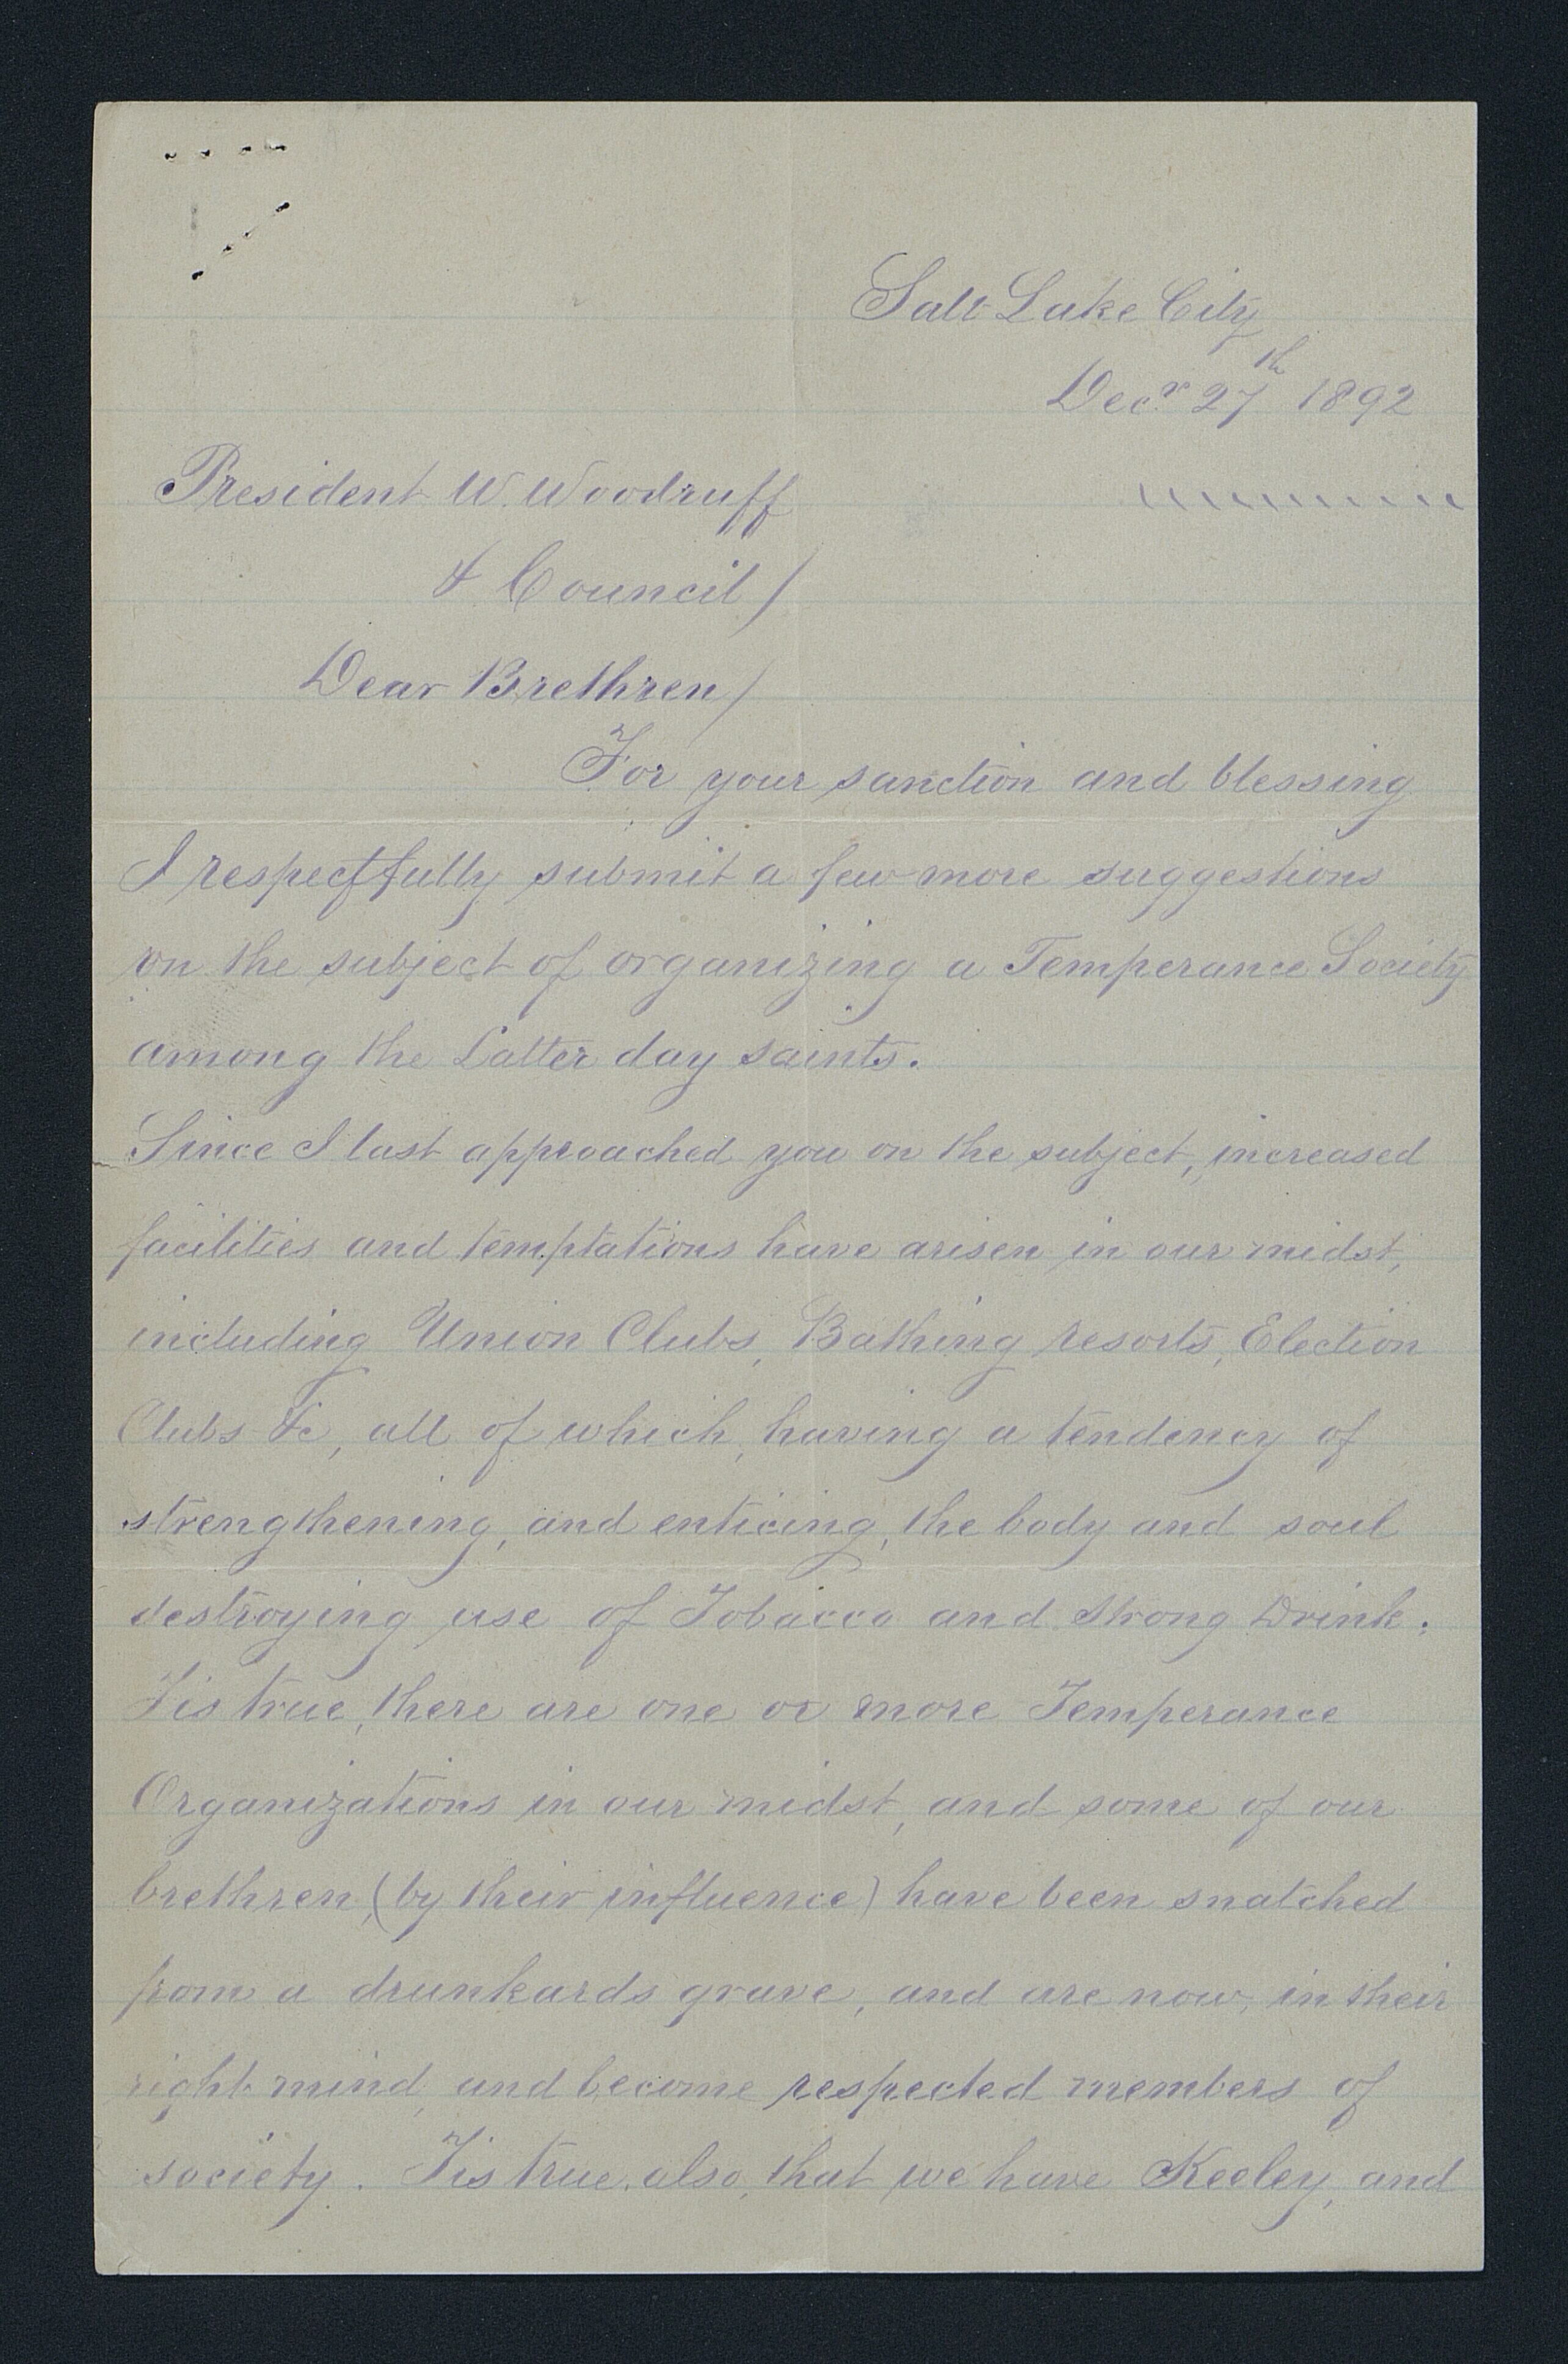 Salt Lake City
Decr 27th 1892
President W. Woodruff
& Council/
Dear Brethren/
For your sanction and blessing
I respectfully submit a few more suggestions
on the subject of organizing a Temperance Society
among the Latter day saints.
Since I last approached you on the subject, increased
facilities and temptations have arisen in our midst,
including Union Clubs, Bathing resorts, Election
Clubs &c, all of which, having a tendency of
strengthening, and enticing, the body and soul
destroying use of Tobacco and Strong Drink.
Tis true, there are one or more Temperance
Organizations in our midst, and some of our
brethren, (by their influence) have been snatched
from a drunkards grave, and are now, in their
right mind, and become respected members of
society. Tis true, also, that we have Keeley, and